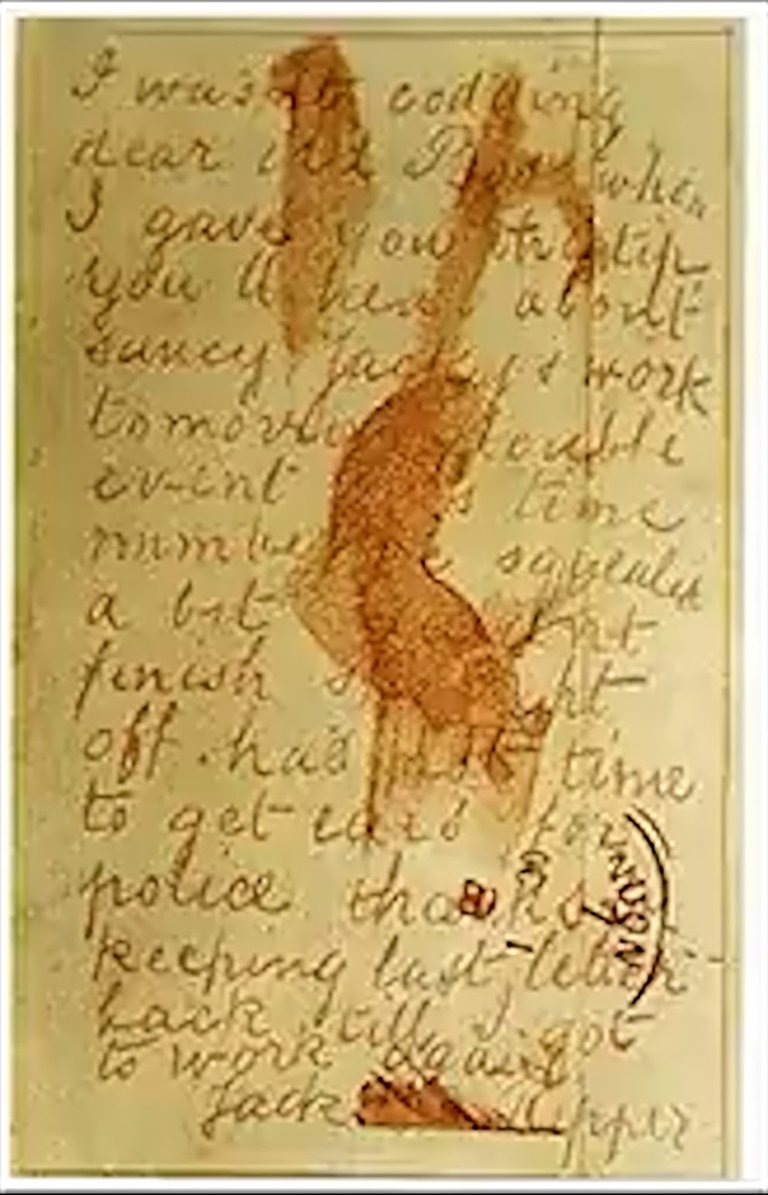 I was not codding
dear old Boss when
I gave you the tip
you'll hear about
saucy Jackys work
tomorrow double
event time
number squealed
a bit
finish
off. had not time
to get ears for
police thanks
keeping last letter
back till I got
to work again
Jack Ripper